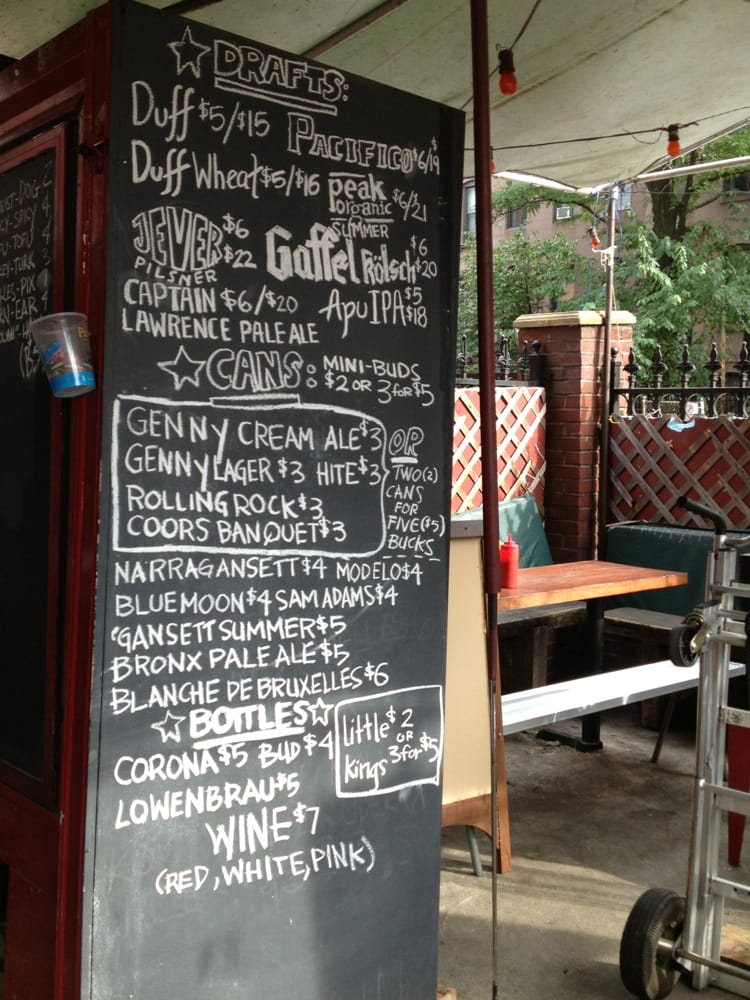 DRAFTS:
Duff $5/$15
PACIFICO $6/19
Duff Wheat $5/$16
peak organic SUMMER $6/$21
JEVER PILSNER $6 $22
Gaffel Kölsch $6 $20
CAPTAIN $6/$20
LAWRENCE PALE ALE
Apu IPA $5 $18
CANS: MINI-BUDS
$2 OR 3 for $5
GENNY CREAM ALE $3
GENNY LAGER $3 HITE $3
ROLLING ROCK $3
COORS BANQUET $3
OR
TWO (2)
CANS
FOR
FIVE ($5)
BUCKS
NARRAGANSETT $4 MODELO $4
BLUE MOON $4 SAM ADAMS $4
'GANSETT SUMMER $5
BRONX PALE ALE $5
BLANCHE DE BRUXELLES $6
BOTTLES
CORONA $5 BUD $4
LOWENBRAU $5
little kings $2
OR
3 for $5
WINE $7
(RED, WHITE, PINK)